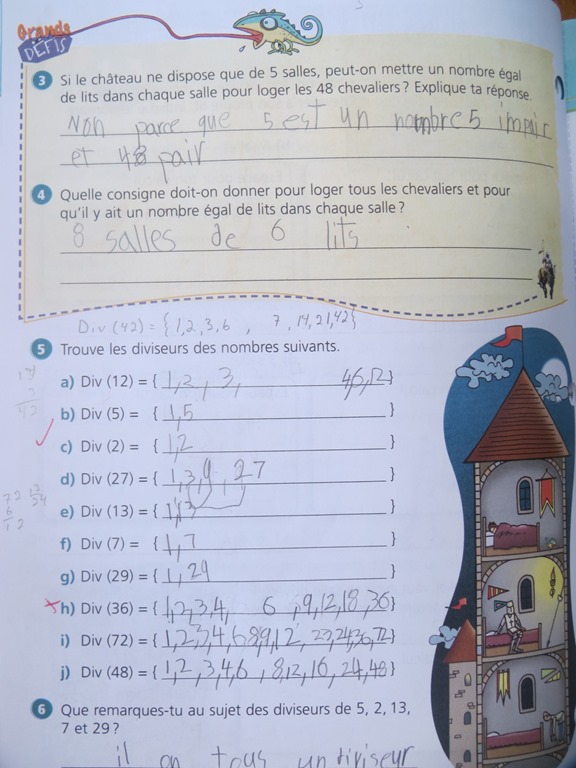 Grands
DÉFIS
3 Si le château ne dispose que de 5 salles, peut-on mettre un nombre égal
de lits dans chaque salle pour loger les 48 chevaliers ? Explique ta réponse.
Non parce que 5 est un nombre 5 impair
et 48 pair
4 Quelle consigne doit-on donner pour loger tous les chevaliers et pour
qu'il y ait un nombre égal de lits dans chaque salle ?
8 salles de 6 lits
Div (42) = {1,2,3,6, 7,14,21,42}
5 Trouve les diviseurs des nombres suivants.
a) Div (12) = { 1,2, 3, 4,6,12}
b) Div (5) = { 1,5 }
c) Div (2) = { 1,2 }
d) Div (27) = { 1,3,9, 27 }
e) Div (13) = { 1,13 }
f) Div (7) = { 1,7 }
g) Div (29) = { 1,29 }
h) Div (36) = { 1,2,3,4, 6, 9,12,18,36}
i) Div (72) = { 1,2,3,4,6,8,9,12, 24,36,72}
j) Div (48) = { 1,2,3,4,6,8,12,16,24,48}
6 Que remarques-tu au sujet des diviseurs de 5, 2, 13,
7 et 29 ?
il on tous un diviseur